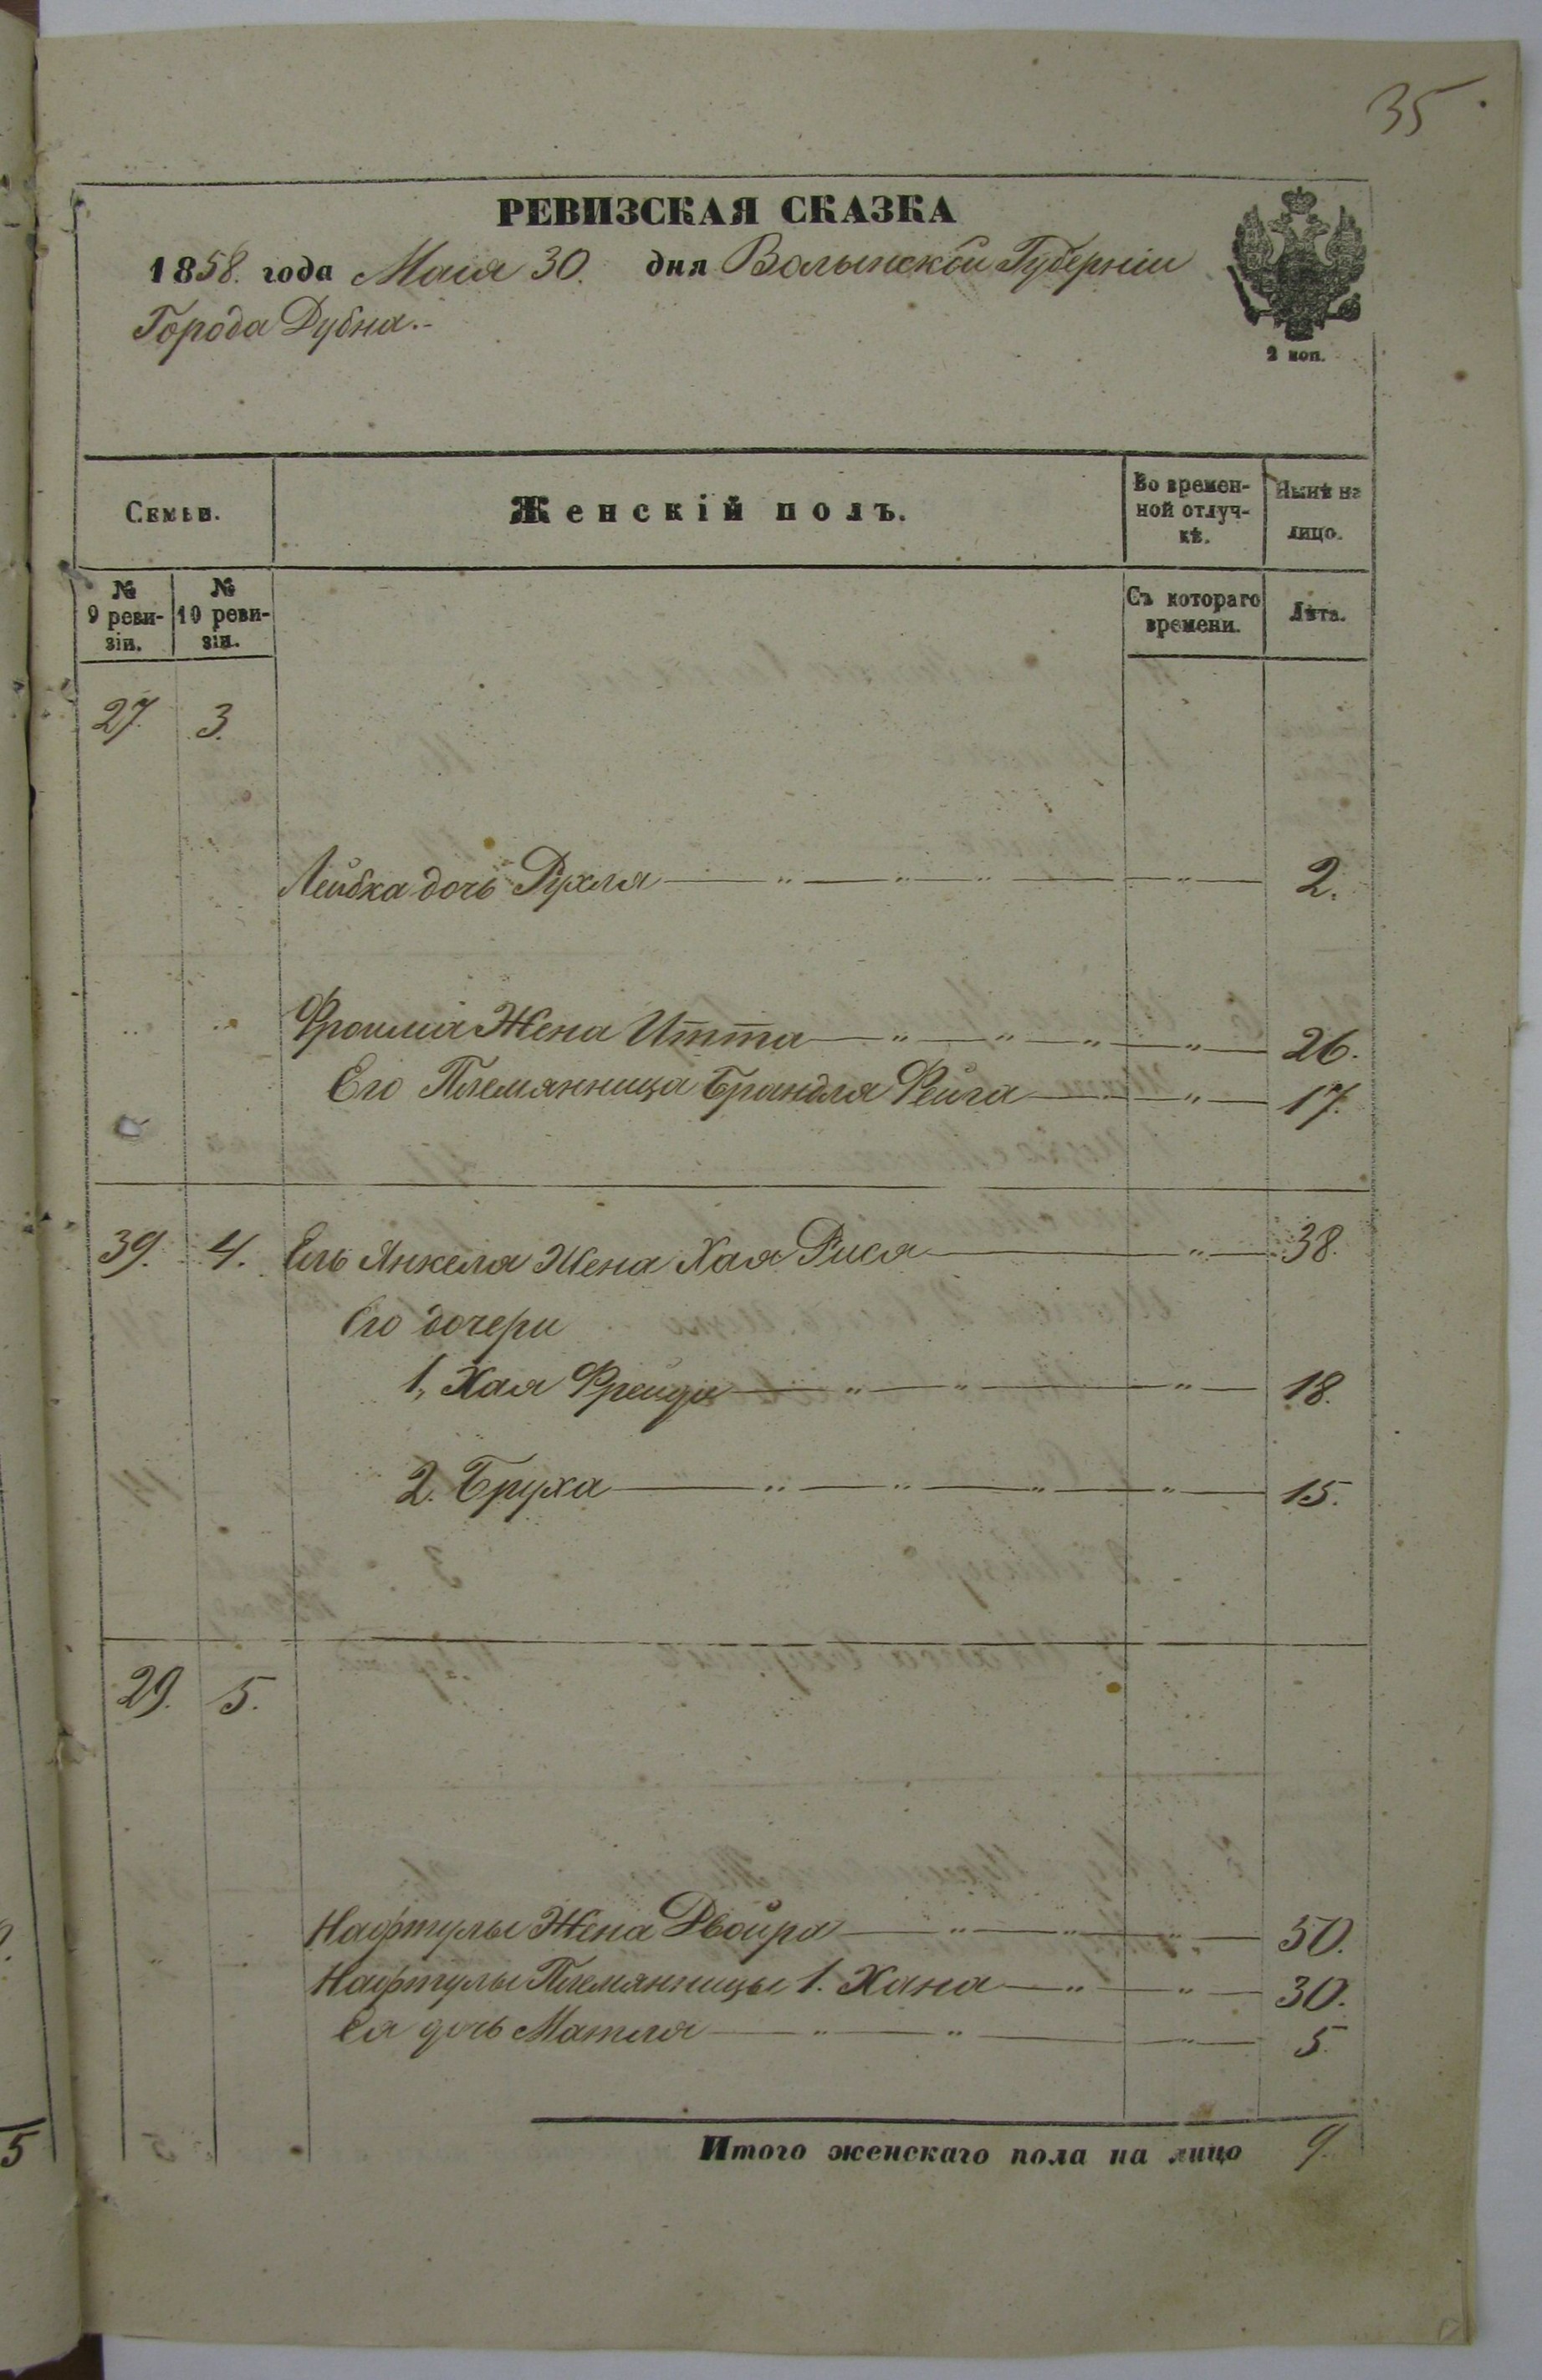 35.
РЕВИЗСКАЯ СКАЗКА
1858. года Маия 30. дня Волынской Губерніи
Города Дубна.-
2 коп.
Семьи.
Женскій полъ.
Во времен-
ной отлуч-
кѣ.
Нынѣ на
лицо.
№
9 реви-
зіи.
№
10 реви-
зіи.
Съ котораго
времени.
Лѣта.
27. 3.
Лейбка дочь Рухля — " — " — " — " — 2.
" " Фроима Жена Итта — " — " — " — " — 26.
Его Племянница Брандля Фейга — " — 17.
39. 4. Ель Янкеля Жена Хая Рися — " — 38.
Его дочери
1, Хая Фрейда — " — " — " — 18.
2. Бруха — " — " — " — " — 15.
29. 5.
Нафтулы Жена Двойра — " — " — " — 50.
Нафтулы Племянницы 1. Хана — " — " — 30.
Ея дочь Матля — " — " — " — 5.
Итого женскаго пола на лицо 9.
5